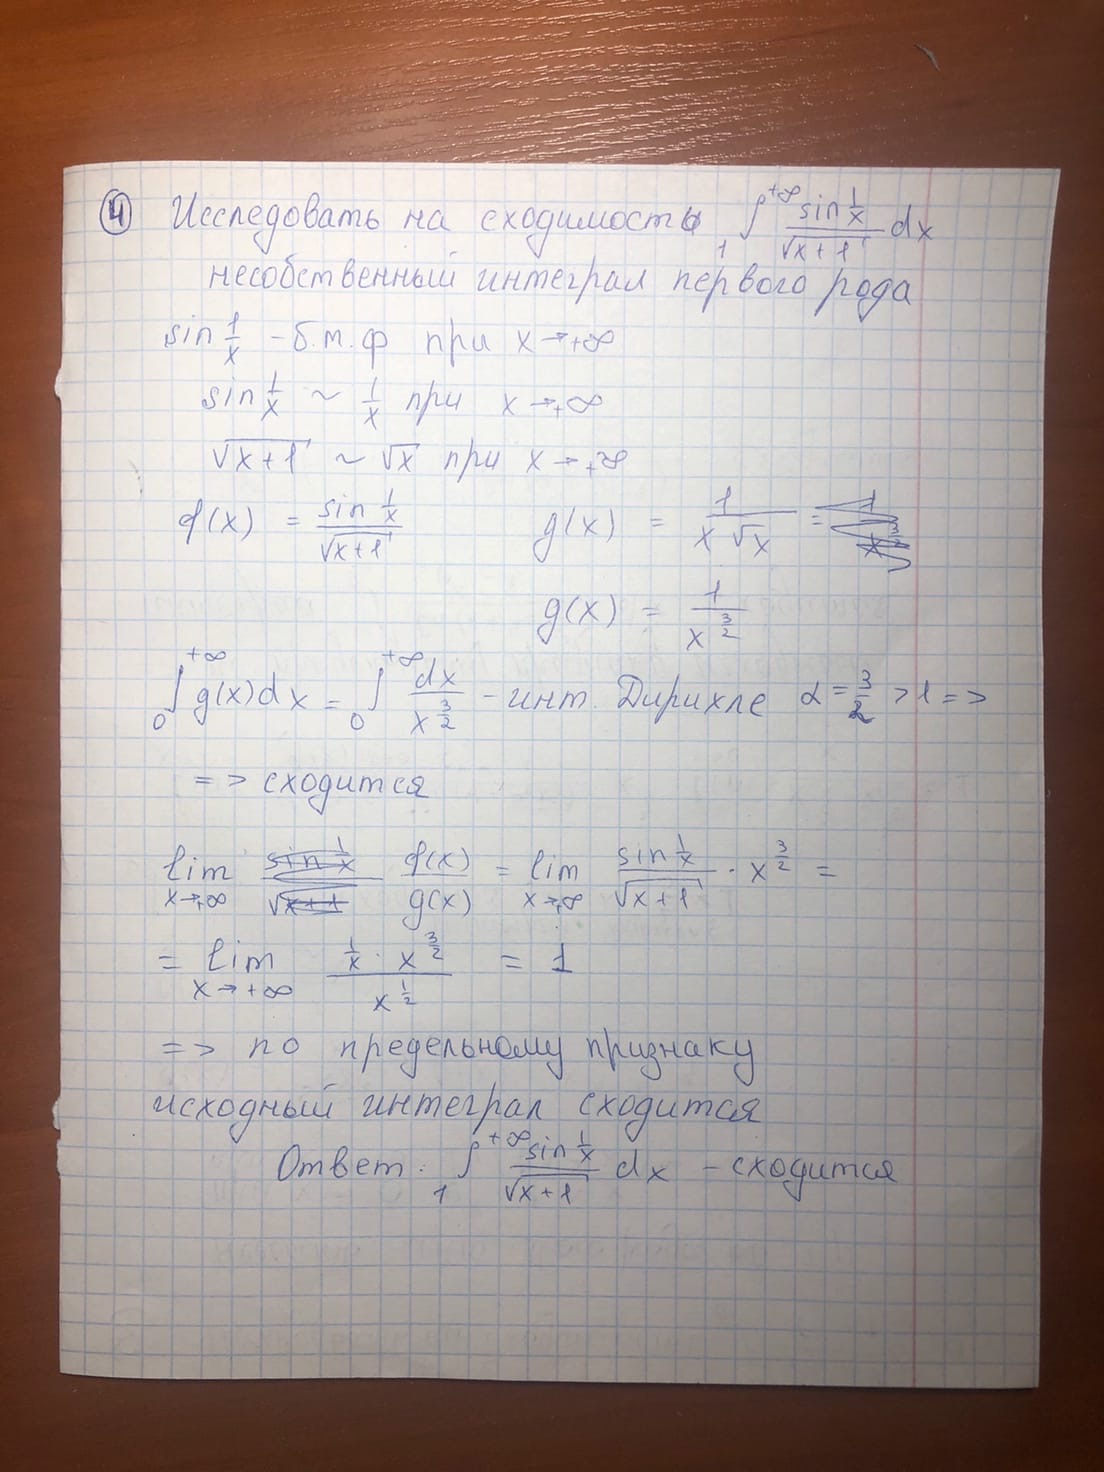 4 Исследовать на сходимость ∫₁^{+∞} sin(1/x)/√(x+1) dx
несобственный интеграл первого рода
sin 1/x – б.м.ф при x→+∞
sin 1/x ~ 1/x при x→+∞
√(x+1) ~ √x при x→+∞
f(x) = sin(1/x)/√(x+1) g(x) = 1/(x√x) =
g(x) = 1/x^{3/2}
∫₀^{+∞} g(x)dx = ∫₀^{+∞} dx/x^{3/2} – инт. Дирихле α = 3/2 > 1 =>
=> сходится
lim_{x→+∞} f(x)/g(x) = lim_{x→+∞} sin(1/x)/√(x+1) · x^{3/2} =
= lim_{x→+∞} (1/x · x^{3/2})/x^{1/2} = 1
=> по предельному признаку
исходный интеграл сходится
Ответ: ∫₁^{+∞} sin(1/x)/√(x+1) dx – сходится